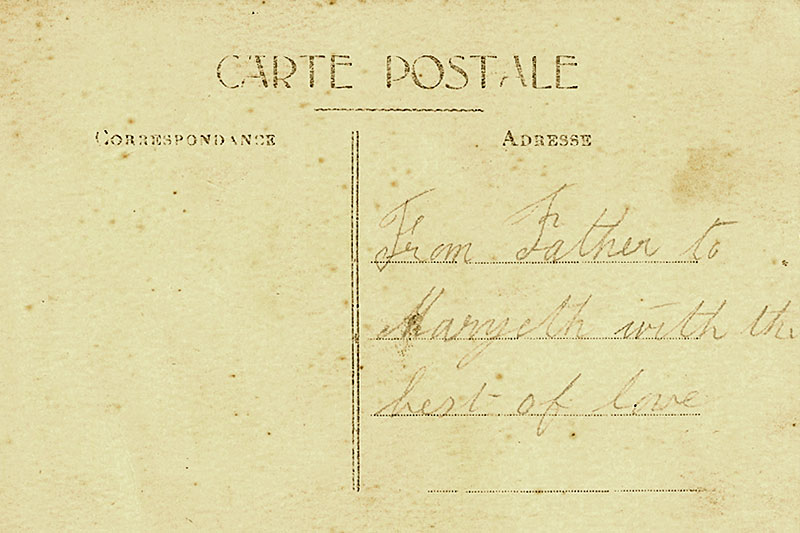 CARTE POSTALE
CORRESPONDANCE
ADRESSE
From Father to
with the
best of love